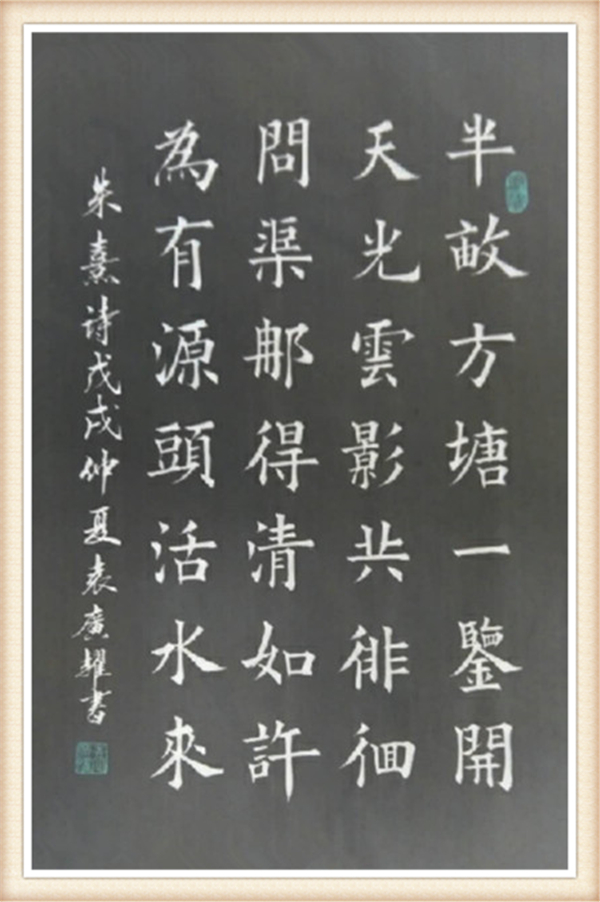 半畝方塘一鑒開
天光雲影共徘徊
問渠那得清如許
為有源頭活水來
朱熹詩戊戌仲夏袁廣耀書